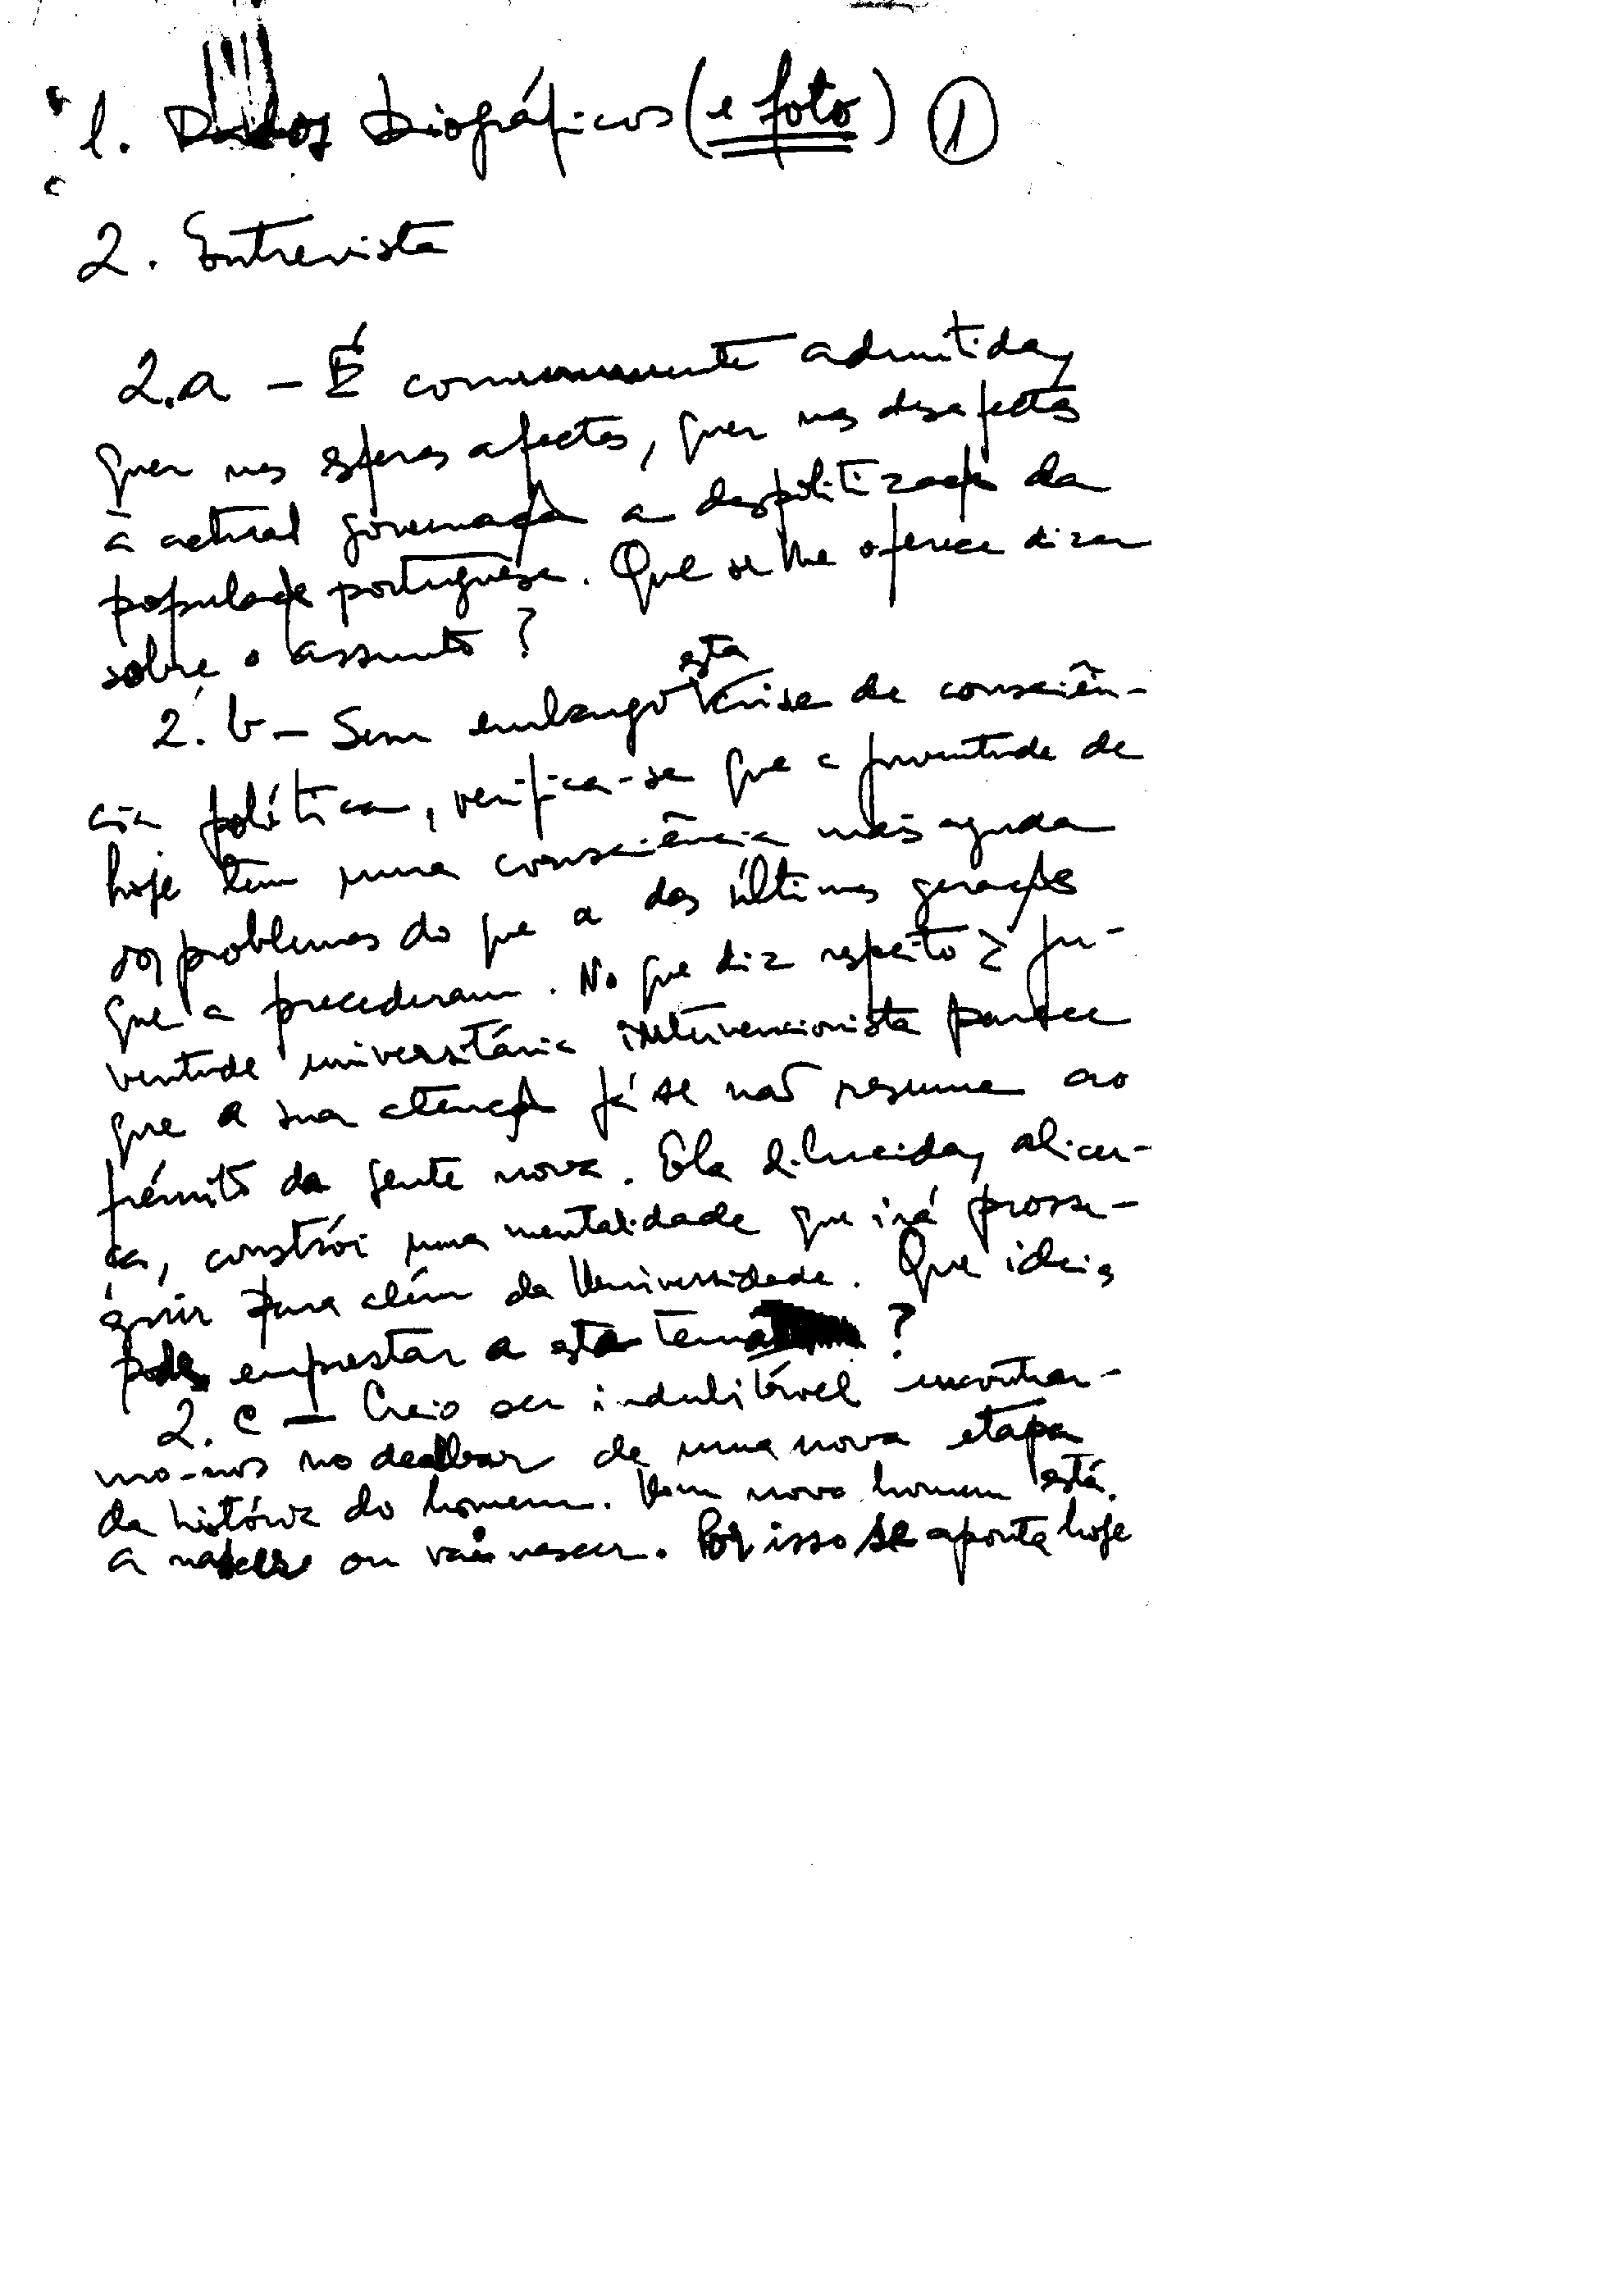 1. Dados biográficos (e foto) 1
2. Entrevista
2.a - É comummente admitida,
quer nas esferas afectas, quer nas desafectas
à actual governação a despolitização da
população portuguesa. Que se lhe oferece dizer
sobre o assunto?
2.b - Sem embargo esta crise de consciên-
cia política, verifica-se que a juventude de
hoje tem uma consciência mais aguda
dos problemas do que a das últimas gerações
que a precederam. No que diz respeito à ju-
ventude universitária intervencionista parece
que a sua atenção já se não resume ao
frémito da gente nova. Ela dilucida, alicer-
ça, constrói uma mentalidade que irá prosse-
guir para além da Universidade. Que ideias
pode emprestar a este tema ?
2.c - Creio ser indubitável encontrar-
mo-nos no dealbar de uma nova etapa
da história do homem. Um novo homem está
a nascer ou vai nascer. Por isso se aponta hoje